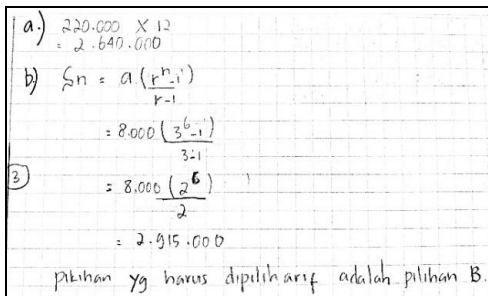 a.) 220.000 X 12
= 2.640.000
b) Sn = a.(rⁿ-1)
r-1
= 8.000 (3⁶-1)
3-1
3
= 8.000 (2⁶)
2
= 2.915.000
pilihan yg harus dipilih arif adalah pilihan B.